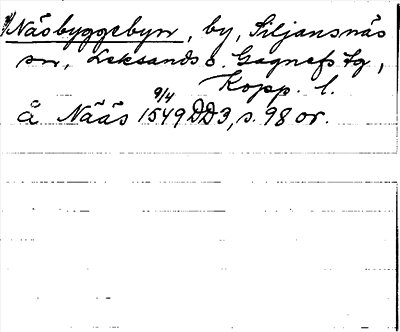 Näsbyggebyn, by, Siljansnäs
sn, Leksands o. Gagnefs tg,
Kopp. l.
9/4
å Nääs 1549 DD3, s. 98 or.